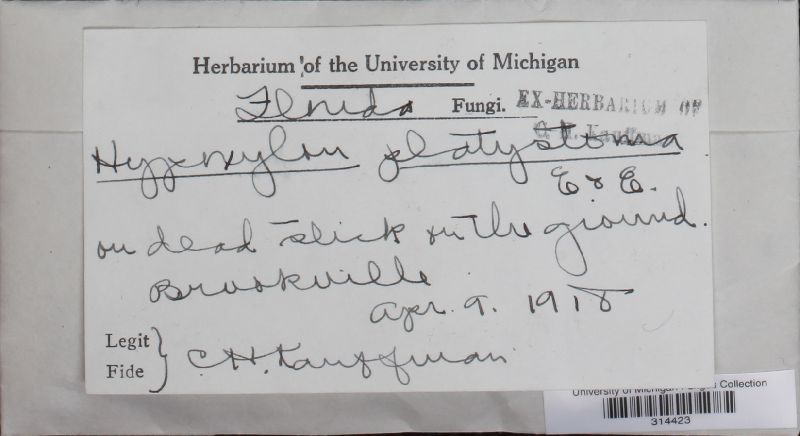 Herbarium of the University of Michigan
Florida Fungi. EX-HERBARIUM OF
C. H. Kauffman
Hypoxylon platystoma
E & E.
on dead stick on the ground.
Brooksville
Apr. 9. 1918
Legit
Fide } C. H. Kauffman
University of Michigan Fungus Collection
314423